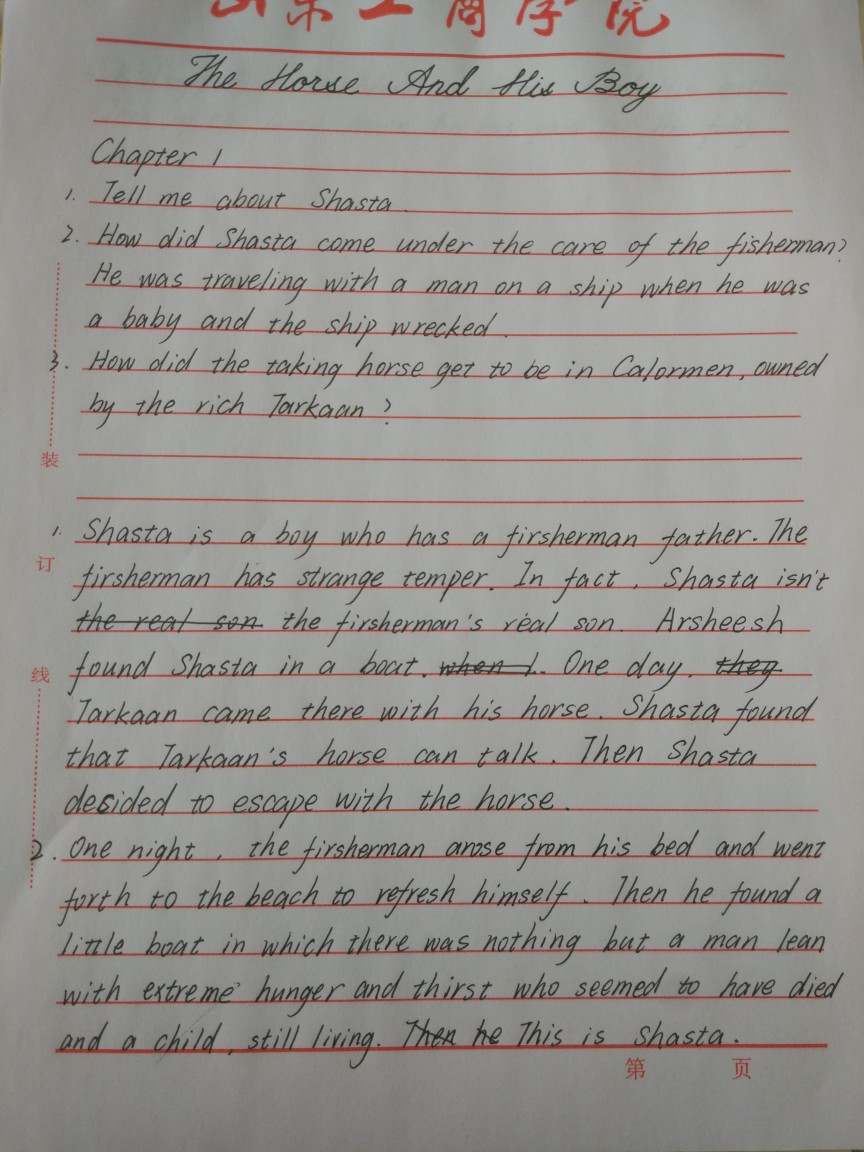 山东工商学院
The Horse And His Boy
Chapter 1
1. Tell me about Shasta.
2. How did Shasta come under the care of the fisherman?
He was traveling with a man on a ship when he was
a baby and the ship wrecked.
3. How did the taking horse get to be in Calormen, owned
by the rich Tarkaan?
装
1. Shasta is a boy who has a firsherman father. The
订
firsherman has strange temper. In fact, Shasta isn't
the real son the firsherman's real son. Arsheesh
线
found Shasta in a boat. when I. One day, they
Tarkaan came there with his horse. Shasta found
that Tarkaan's horse can talk. Then Shasta
decided to escape with the horse.
2. One night, the firsherman arose from his bed and went
forth to the beach to refresh himself. Then he found a
little boat in which there was nothing but a man lean
with extreme hunger and thirst who seemed to have died
and a child, still living. Then he This is Shasta.
第 页